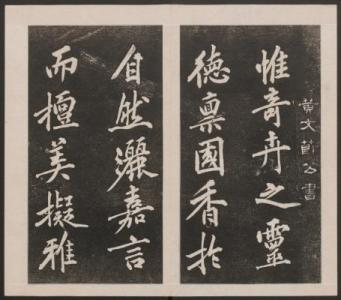 黃文節公書
惟奇卉之靈
德稟國香於
自然灑嘉言
而擅美擬雅